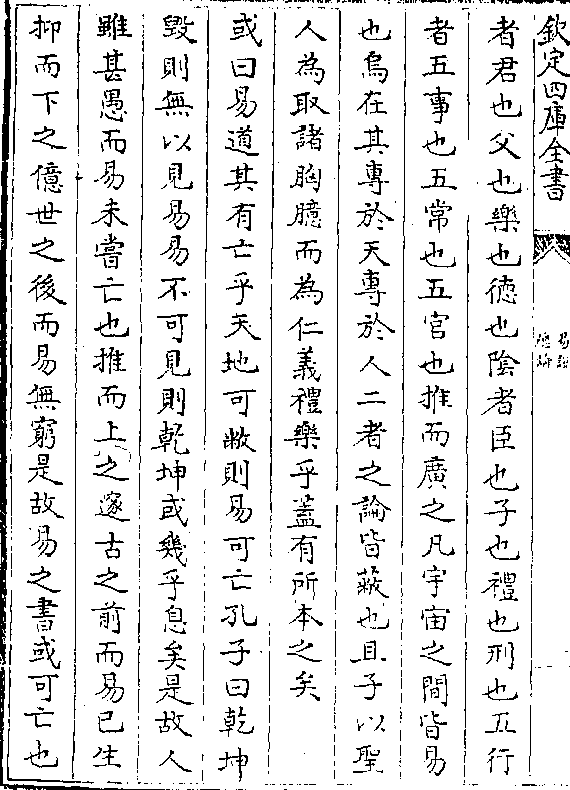 欽定四庫全書
易說
總論
者君也父也樂也徳也陰者臣也子也禮也刑也五行
者五事也五常也五官也推而廣之凡宇宙之間皆易
也烏在其專於天專於人二者之論皆蔽也且子以聖
人為取諸胸臆而為仁義禮樂乎蓋有所本之矣
或曰易道其有亡乎天地可敝則易可亡孔子曰乾坤
毀則無以見易易不可見則乾坤或幾乎息矣是故人
雖甚愚而易未嘗亡也推而上之邃古之前而易已生
抑而下之億世之後而易無窮是故易之書或可亡也